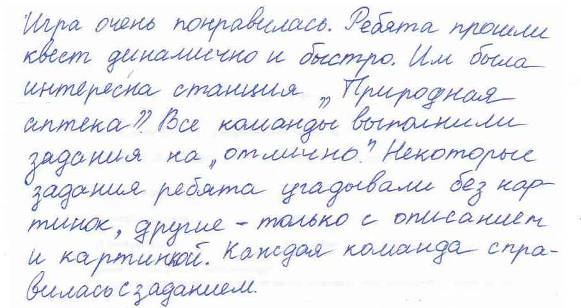 Игра очень понравилась. Ребята прошли
квест динамично и быстро. Им была
интересна станция „Природная
аптека”. Все команды выполнили
задания на „отлично”. Некоторые
задания ребята угадывали без кар-
тинок, другие – только с описанием
и картинкой. Каждая команда спра-
вилась с заданием.